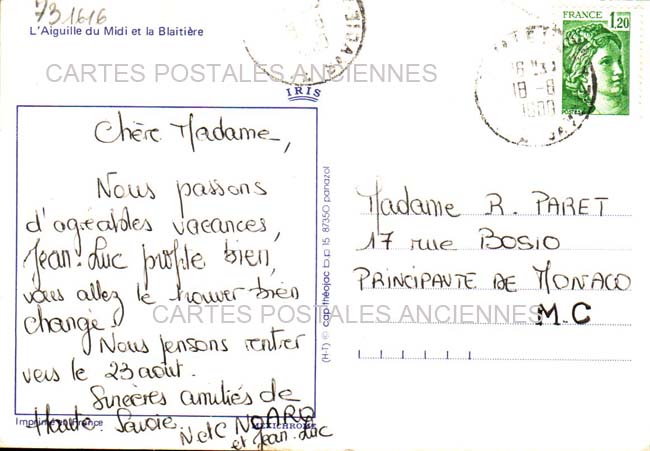 731616
L'Aiguille du Midi et la Blaitière
CARTES POSTALES ANCIENNES
IRIS
FRANCE 1,20
16 H
18 -8
1980
POSTES
Chère Madame,
Nous passons
d'agréables vacances,
Jean-Luc profite bien,
vous allez le trouver bien
changé!
Nous pensons rentrer
vers le 23 août.
Sincères amitiés de
Haute-Savoie.
N et C NOARO
et Jean-Luc
Imprimé en France
MEXICHROME
(H-T) © cap-théojac b.p. 15 87350 panazol
Madame R. PARET
17 rue BOSIO
PRINCIPAUTE DE MONACO
M.C
CARTES POSTALES ANCIENNES